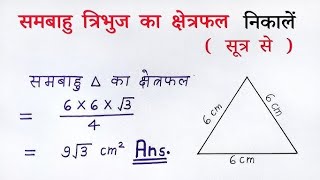 समबाहु त्रिभुज का क्षेत्रफल निकालें
( सूत्र से )
समबाहु △ का क्षेत्रफल
= 6 × 6 × √3
4
= 9√3 cm² Ans.
6 cm
6 cm
6 cm